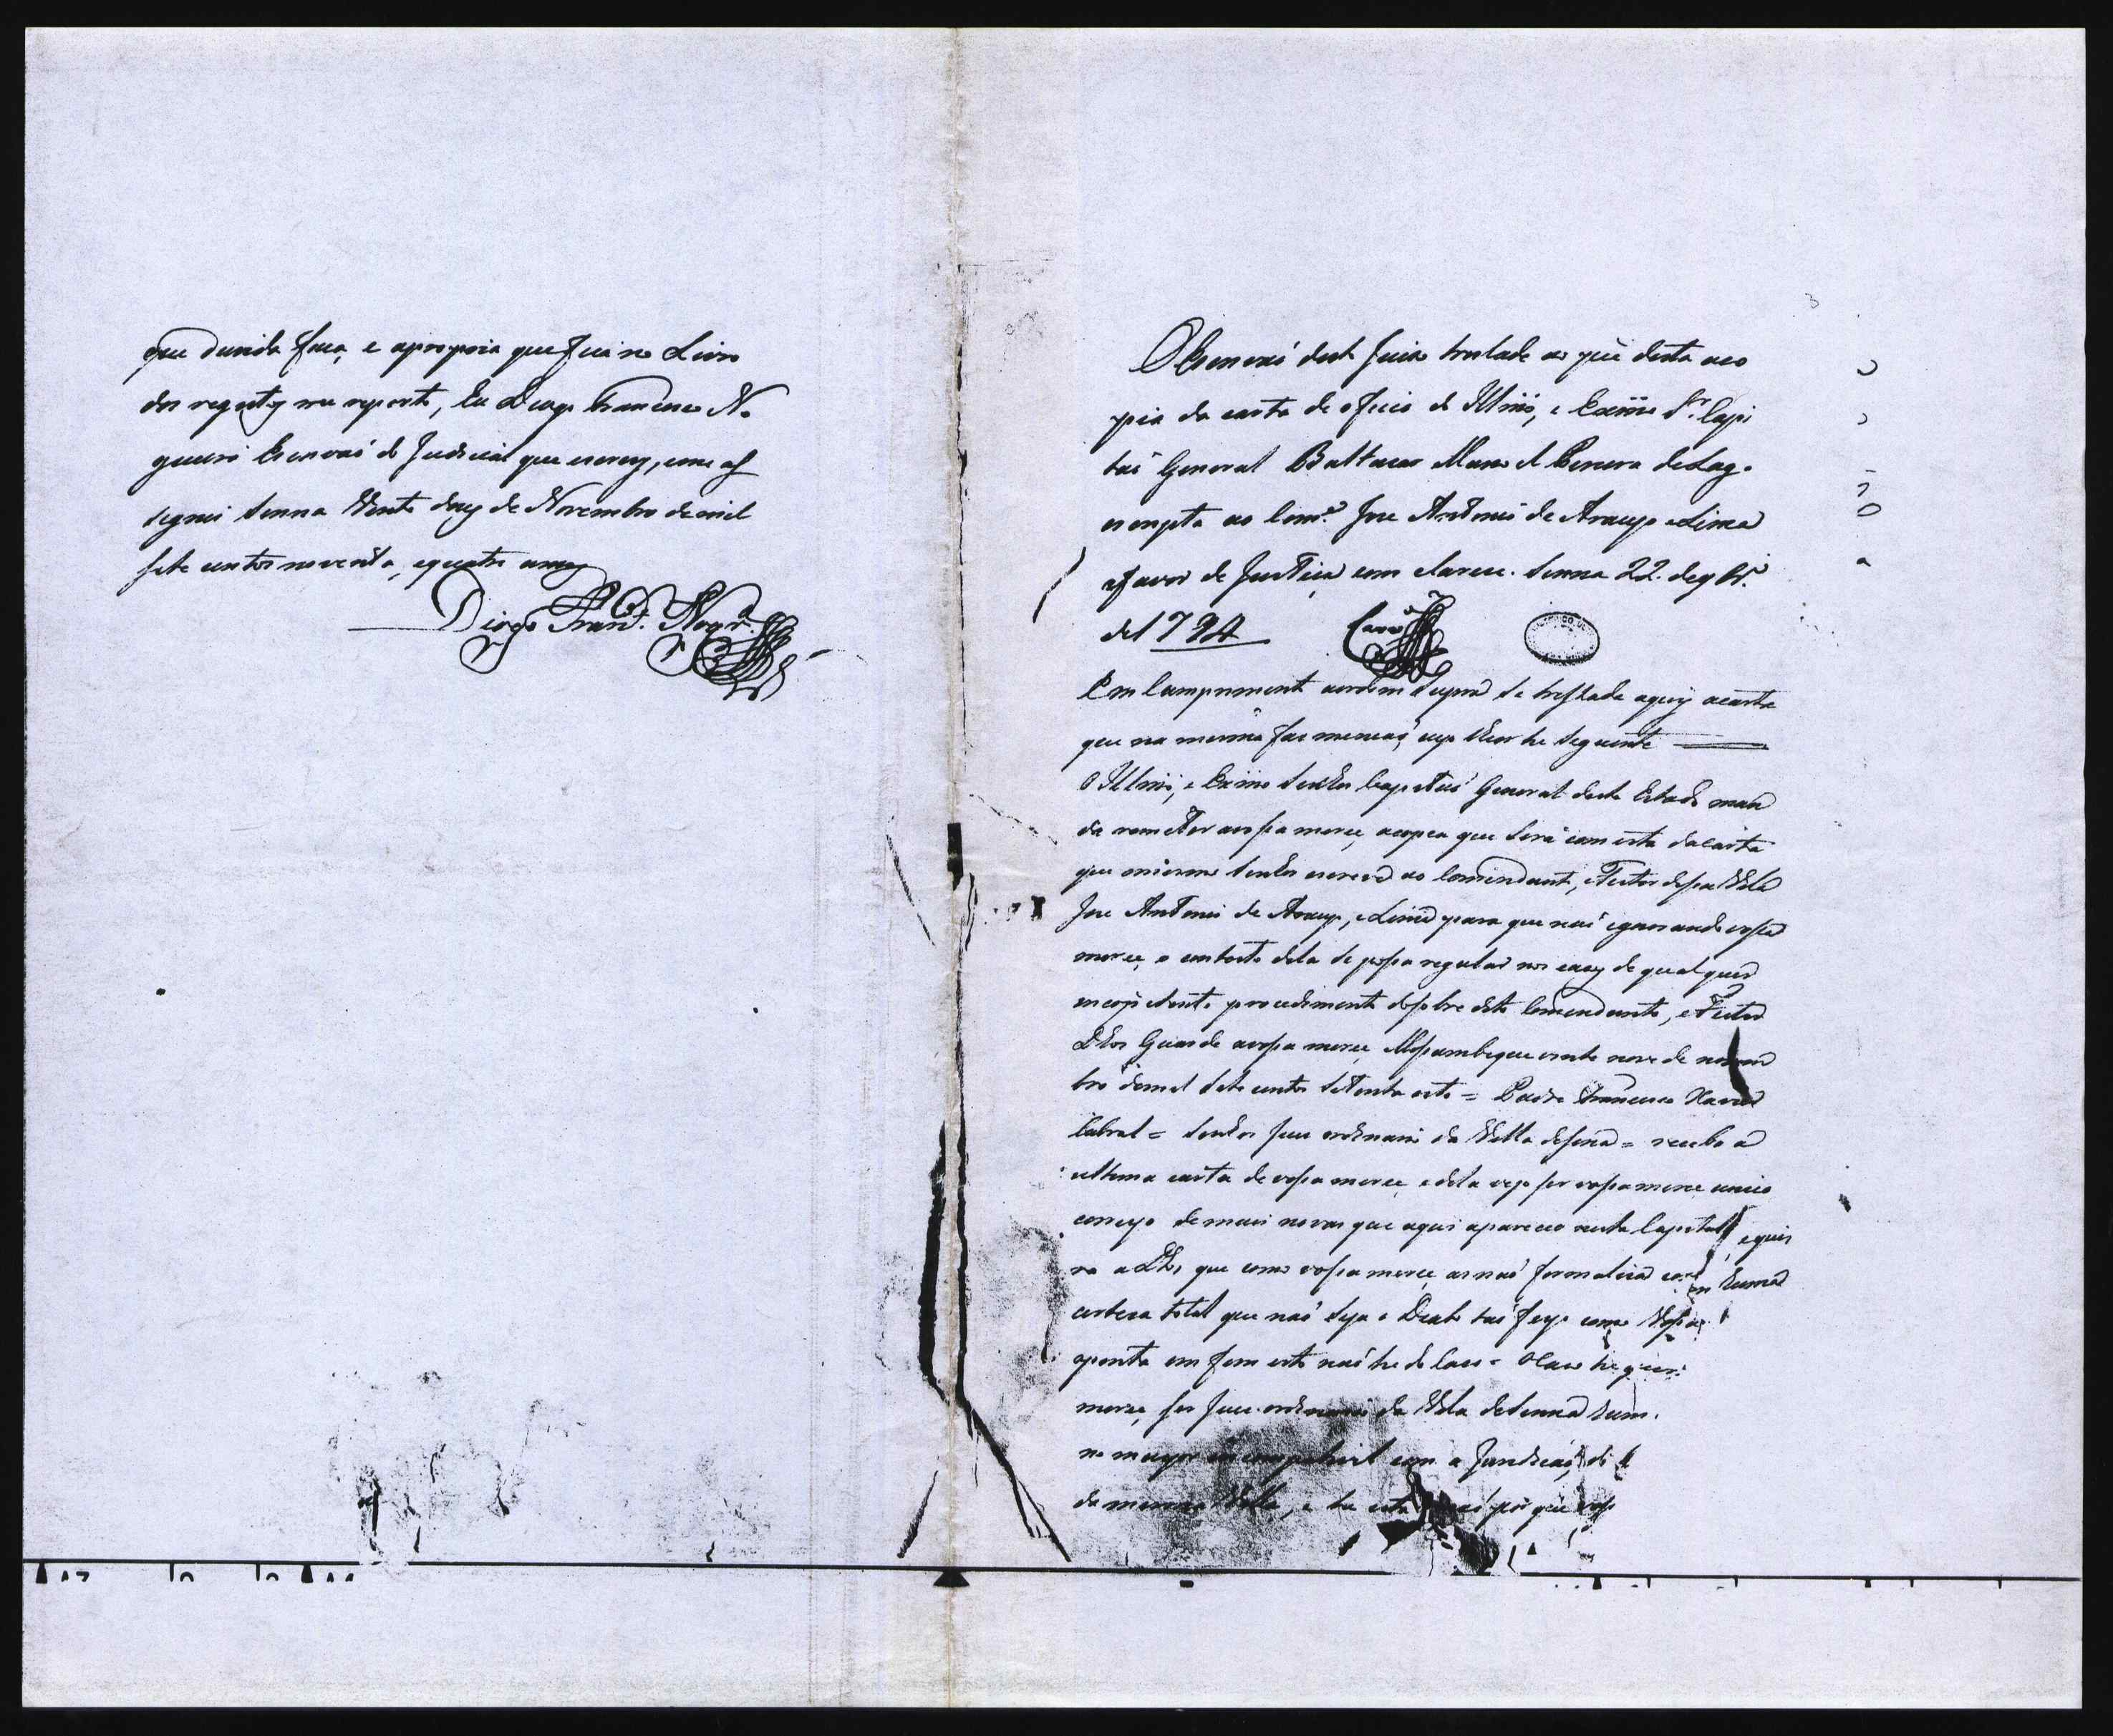 que duvida faça, e apropria que fica no Livro
dos registos me reporto, Eu Diogo Francisco No
gueira Escrivaõ do Judicial que escrevy, eme as
signei Senna Vinte dous de Novembro de mil
sete centos noventa, equatro annos
Diogo Fran.co Nogr.a
3
O Escrivaõ deste Juizo traslade ao pé desta aco
pia da carta de oficio do Illmo, e Exmo Sr. Capi
taõ General Baltazar Manoel Pereira do Lago
escripta ao Com.e Joze Antonio de Araujo Lima
afavor de Justiça com clareza. Senna 22. de 9br.o
de 1794
Em Cumprimento aordem supra se tresllada aqui acarta
que na mesma faz mençaõ cujo theor he seguinte
O Illmo, e Exmo Senhor Capitaõ General deste Estado man
da remeter avossa merce, acopea que será com esta dacarta
que omesmo Senhor escreveo ao Comendante, e Feitor dessa Villa
Joze Antonio de Araujo, e Lima para que naõ ignorando vossa
merce, o contexto dela se possa regular nos cazos de qualquer
procedimento dosobre dito Comendante, e Feitor
D'eos Guarde avossa merce Mossambique vinte nove de novem
bro demil sete centos setenta = Padre Francisco Xavier
Cabral = Senhor Juiz ordinario da Villa deSena = recebo a
ultima carta de vossa merce, e dela vejo ser vossa merce unico
correyo de mais novas que aqui apareceo nesta Capital, e quei
ra a D's que como vossa merce, as naõ formaliza com huma
certeza total que naõ seja o Diabo taõ feyo como Vossa
aponta em fim este naõ he do Cazo = O Cazo he quer
merce, ser Juiz ordinario da Villa deSenna hum
no mayor incompativel com a Jurisdicaõ do
da mesma Villa, e he esta por que voss